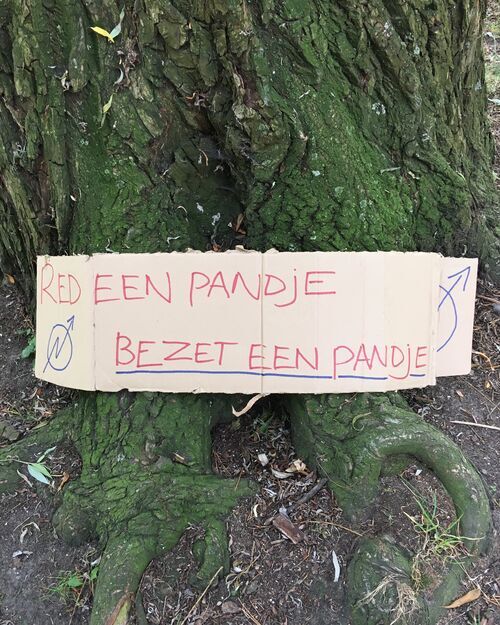 RED EEN PANDJE
BEZET EEN PANDJE